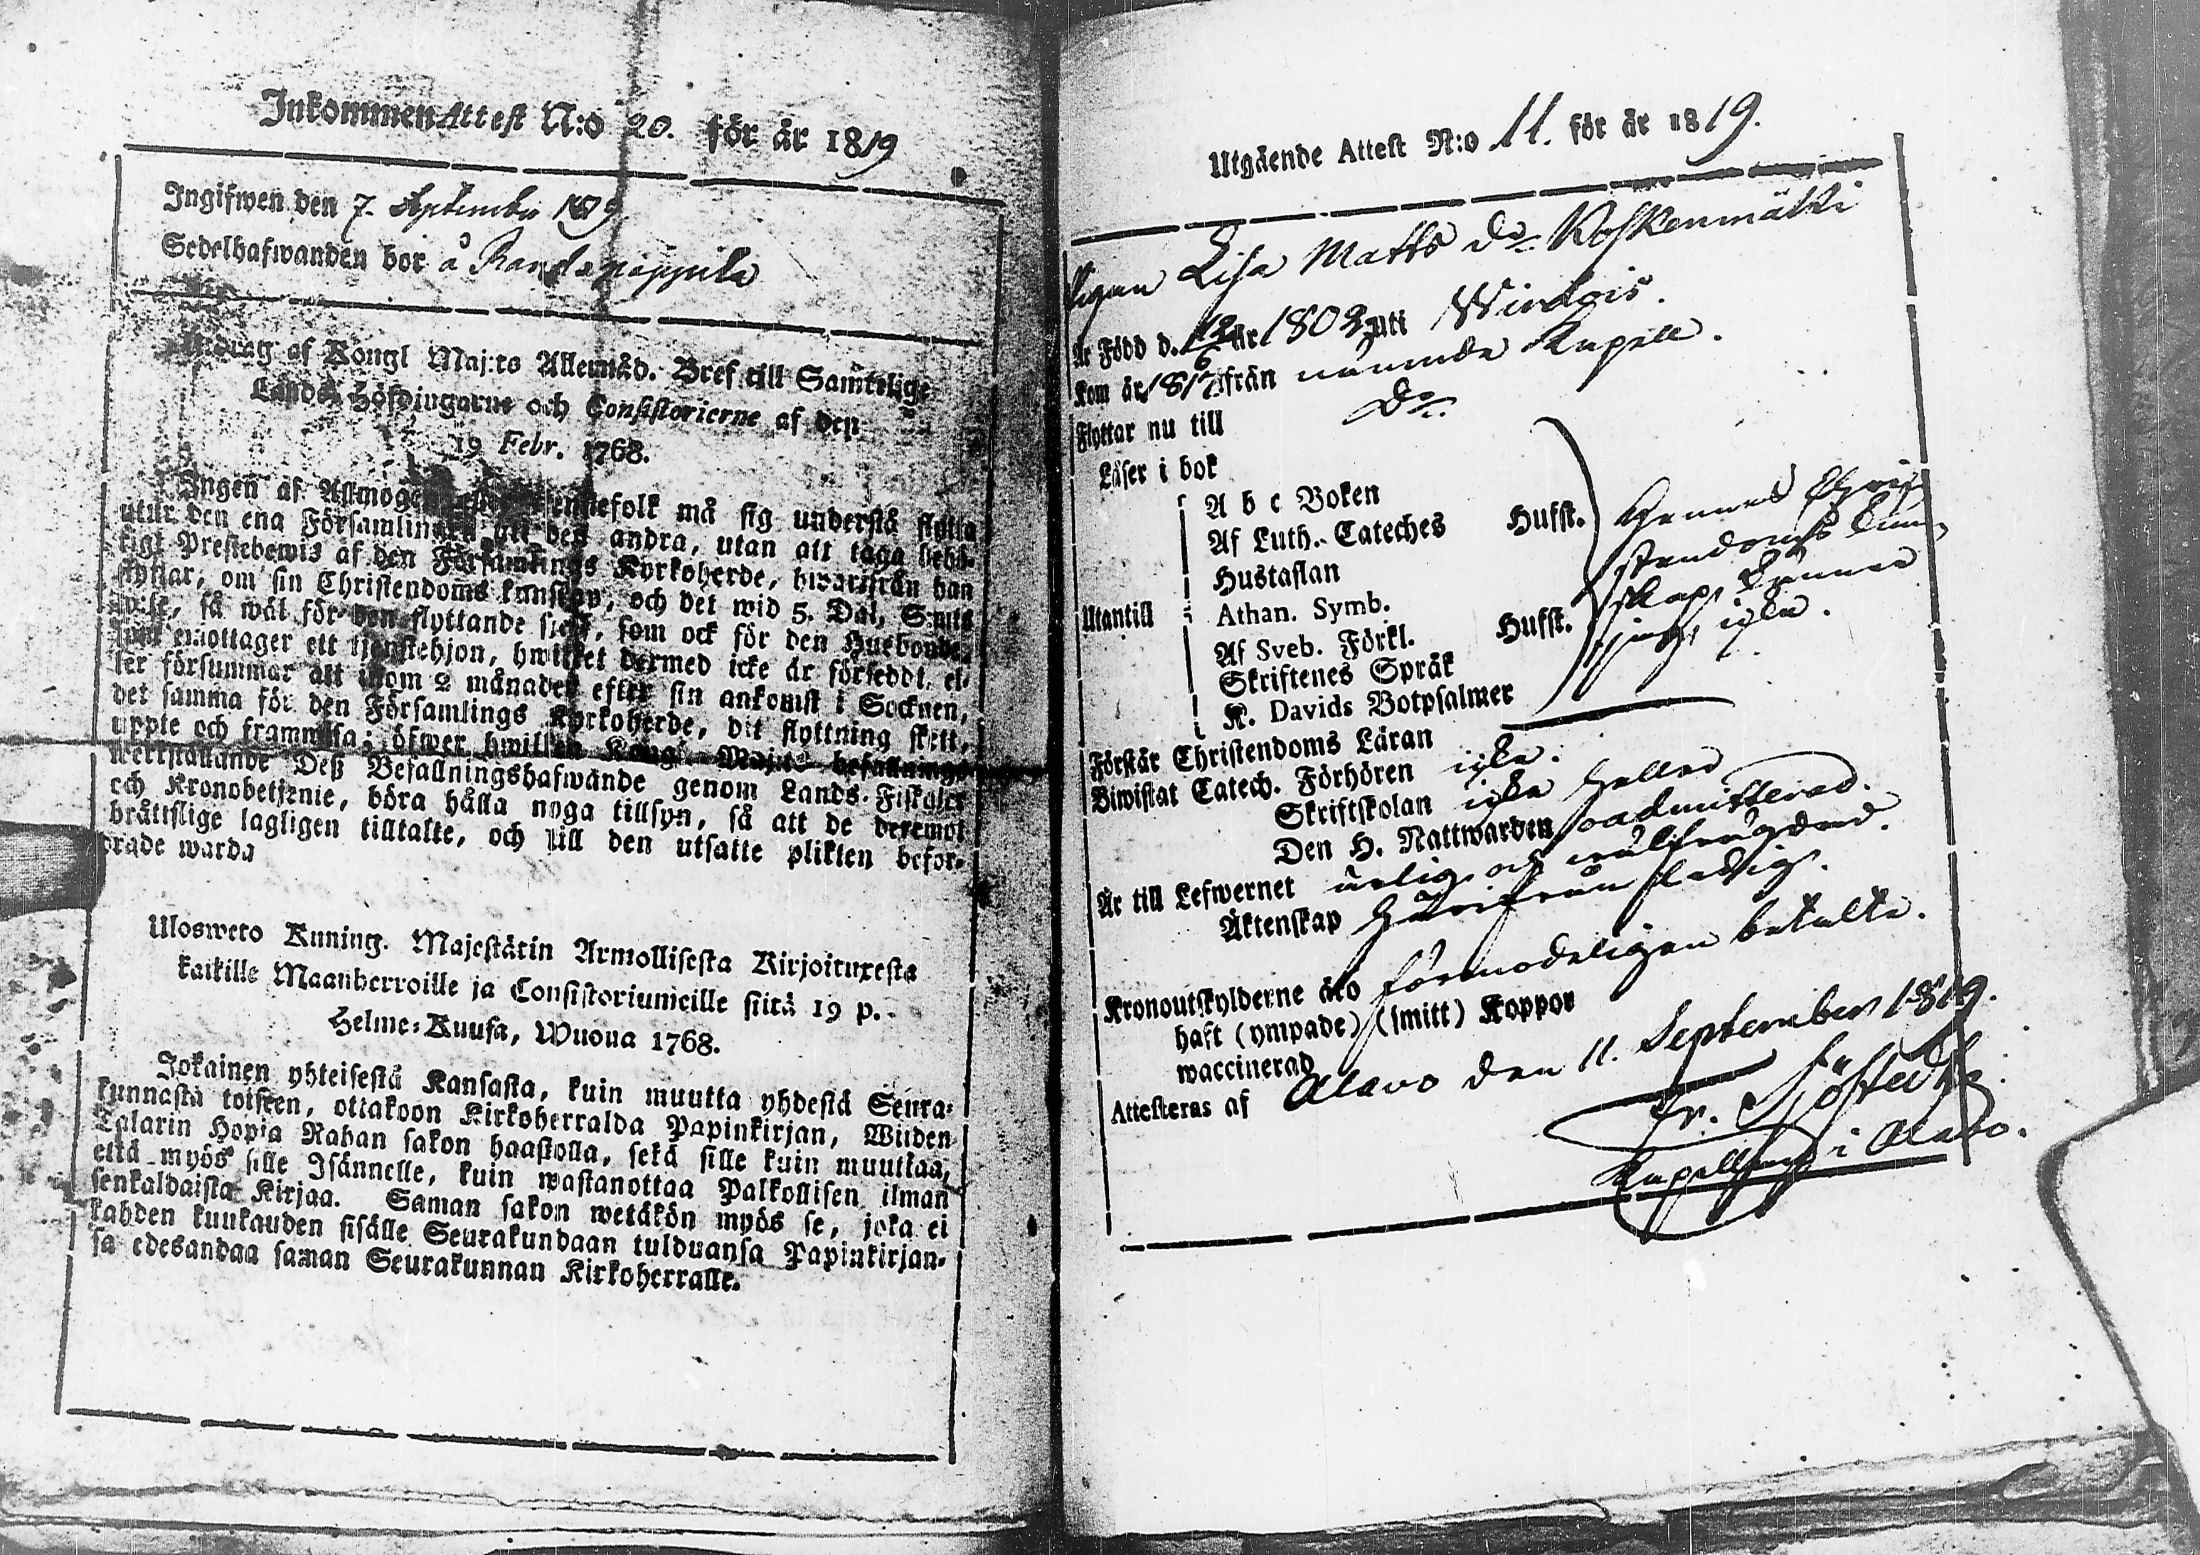 Inkommen Attest N:o 20. för år 1819
Ingifwen den 7. Septembr 1819
Sedelhafwanden bor å
Utdrag af Kongl Maj:ts Allernåd. Bref till Samtelige
Lands-Höfdingarne och Consistorierne af den
19 Febr. 1768.
Ingen af Allmogen må sig understå flytta
utur den ena Församlingen till den andra, utan att taga behö-
rigt Prestebewis af den Församlings Kyrkoherde, hwarifrån han
flyttar, om sin Christendoms kunskap, och det wid 5. Dal. S:mts
wite, så wäl för den flyttande sielf, som ock för den Husbonde,
som emottager ett tjenstehjon, hwilket dermed icke är försedt, el-
ler försummar att inom 2 månader efter sin ankomst i Socknen,
det samma för den Församlings Kyrkoherde, dit flyttning skett,
uppte och framwisa; öfwer hwilken Kongl Maj:ts befallnings
werkställande Deß Befallningshafwande genom Lands-Fiskaler
och Kronobetjenie, böra hålla noga tillsyn, så att de deremot
bråttslige lagligen tilltalte, och till den utsatte plikten befor-
drade warda
Uloswero Kuning. Majestätin Armollisesta Kirjoituxesta
kaikille Maanherroille ja Consistoriumeille siitä 19 p.
Helme-Kuusa, Wuona 1768.
Jokainen yhteisestä Kansasta, kuin muutta yhdestä Seura-
kunnasta toiseen, ottakoon Kirkoherralda Papinkirjan, Wiiden
Talarin Hopia Rahan sakon haastolla, sekä sille kuin muuttaa,
että myös sille Isännelle, kuin wastanottaa Palkollisen ilman
senkaldaista Kirjaa. Saman sakon wetäkön myös se, joka ei
kahden kuukauden sisälle Seurakundaan tulduansa Papinkirjan-
sa edesandaa saman Seurakunnan Kirkoherralle.
Utgående Attest N:o 11. för år 1819.
Pigan Lisa Matts dr Koskenmäki
Är Född d. 12/6 år 1802 uti Wirdois.
kom år 1817 från nämnde Kapell.
Flyttar nu till Do
Läser i bok
A b c Boken
Af Luth. Cateches Husst.
Hustaflan
Utantill Athan. Symb.
Af Sveb. Förkl. Husst.
Skriftenes Språk
K. Davids Botpsalmer
Hennes Chri-
stendoms kun-
skap, känner
jag icke.
Förstår Christendoms Läran
Biwistat Catech. Förhören icke.
Skriftskolan icke heller
Den H. Nattwarden oadmitterad.
Är till Lefwernet ärlig och wälfrägdad.
Äktenskap härifrån ledig.
Kronoutskylderne äro förmodeligen betalte.
haft (ympade) (smitt) Koppor
waccinerad
Attesteras af Alavo den 11. September 1819.
Fr. Sjöstedt
Kapellan i Alavo.